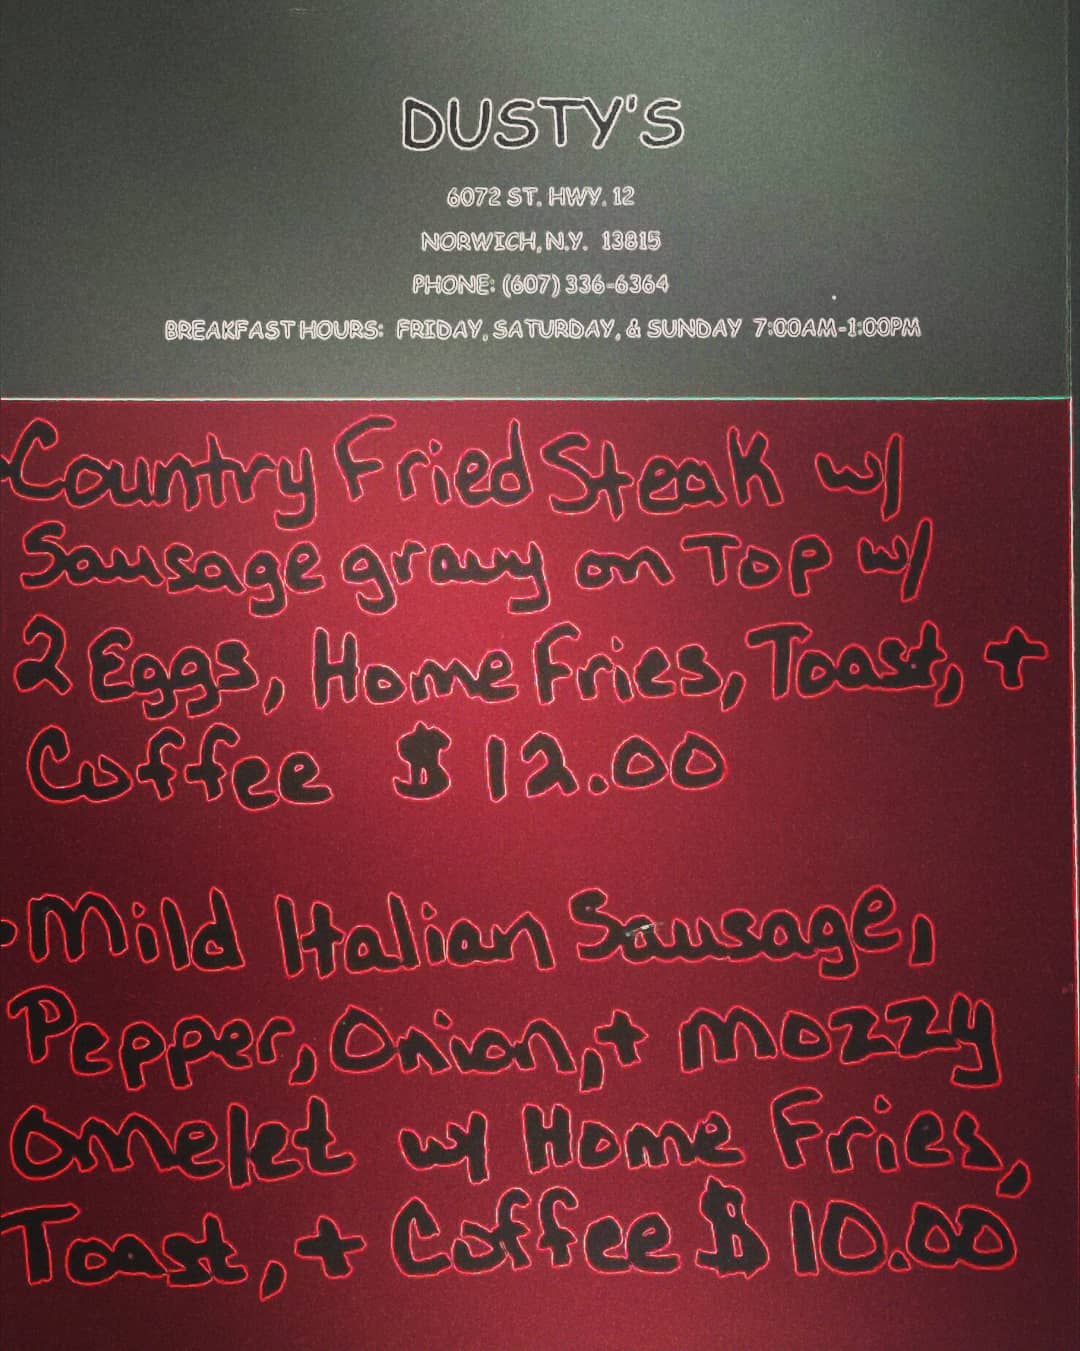 DUSTY'S
6072 ST. HWY. 12
NORWICH, N.Y. 13815
PHONE: (607) 336-6364
BREAKFAST HOURS: FRIDAY, SATURDAY, & SUNDAY 7:00AM-1:00PM
•Country Fried Steak w/
Sausage gravy on Top w/
2 Eggs, Home Fries, Toast, +
Coffee $12.00
•Mild Italian Sausage,
Pepper, Onion, + mozzy
omelet w/ Home Fries,
Toast, + Coffee $10.00